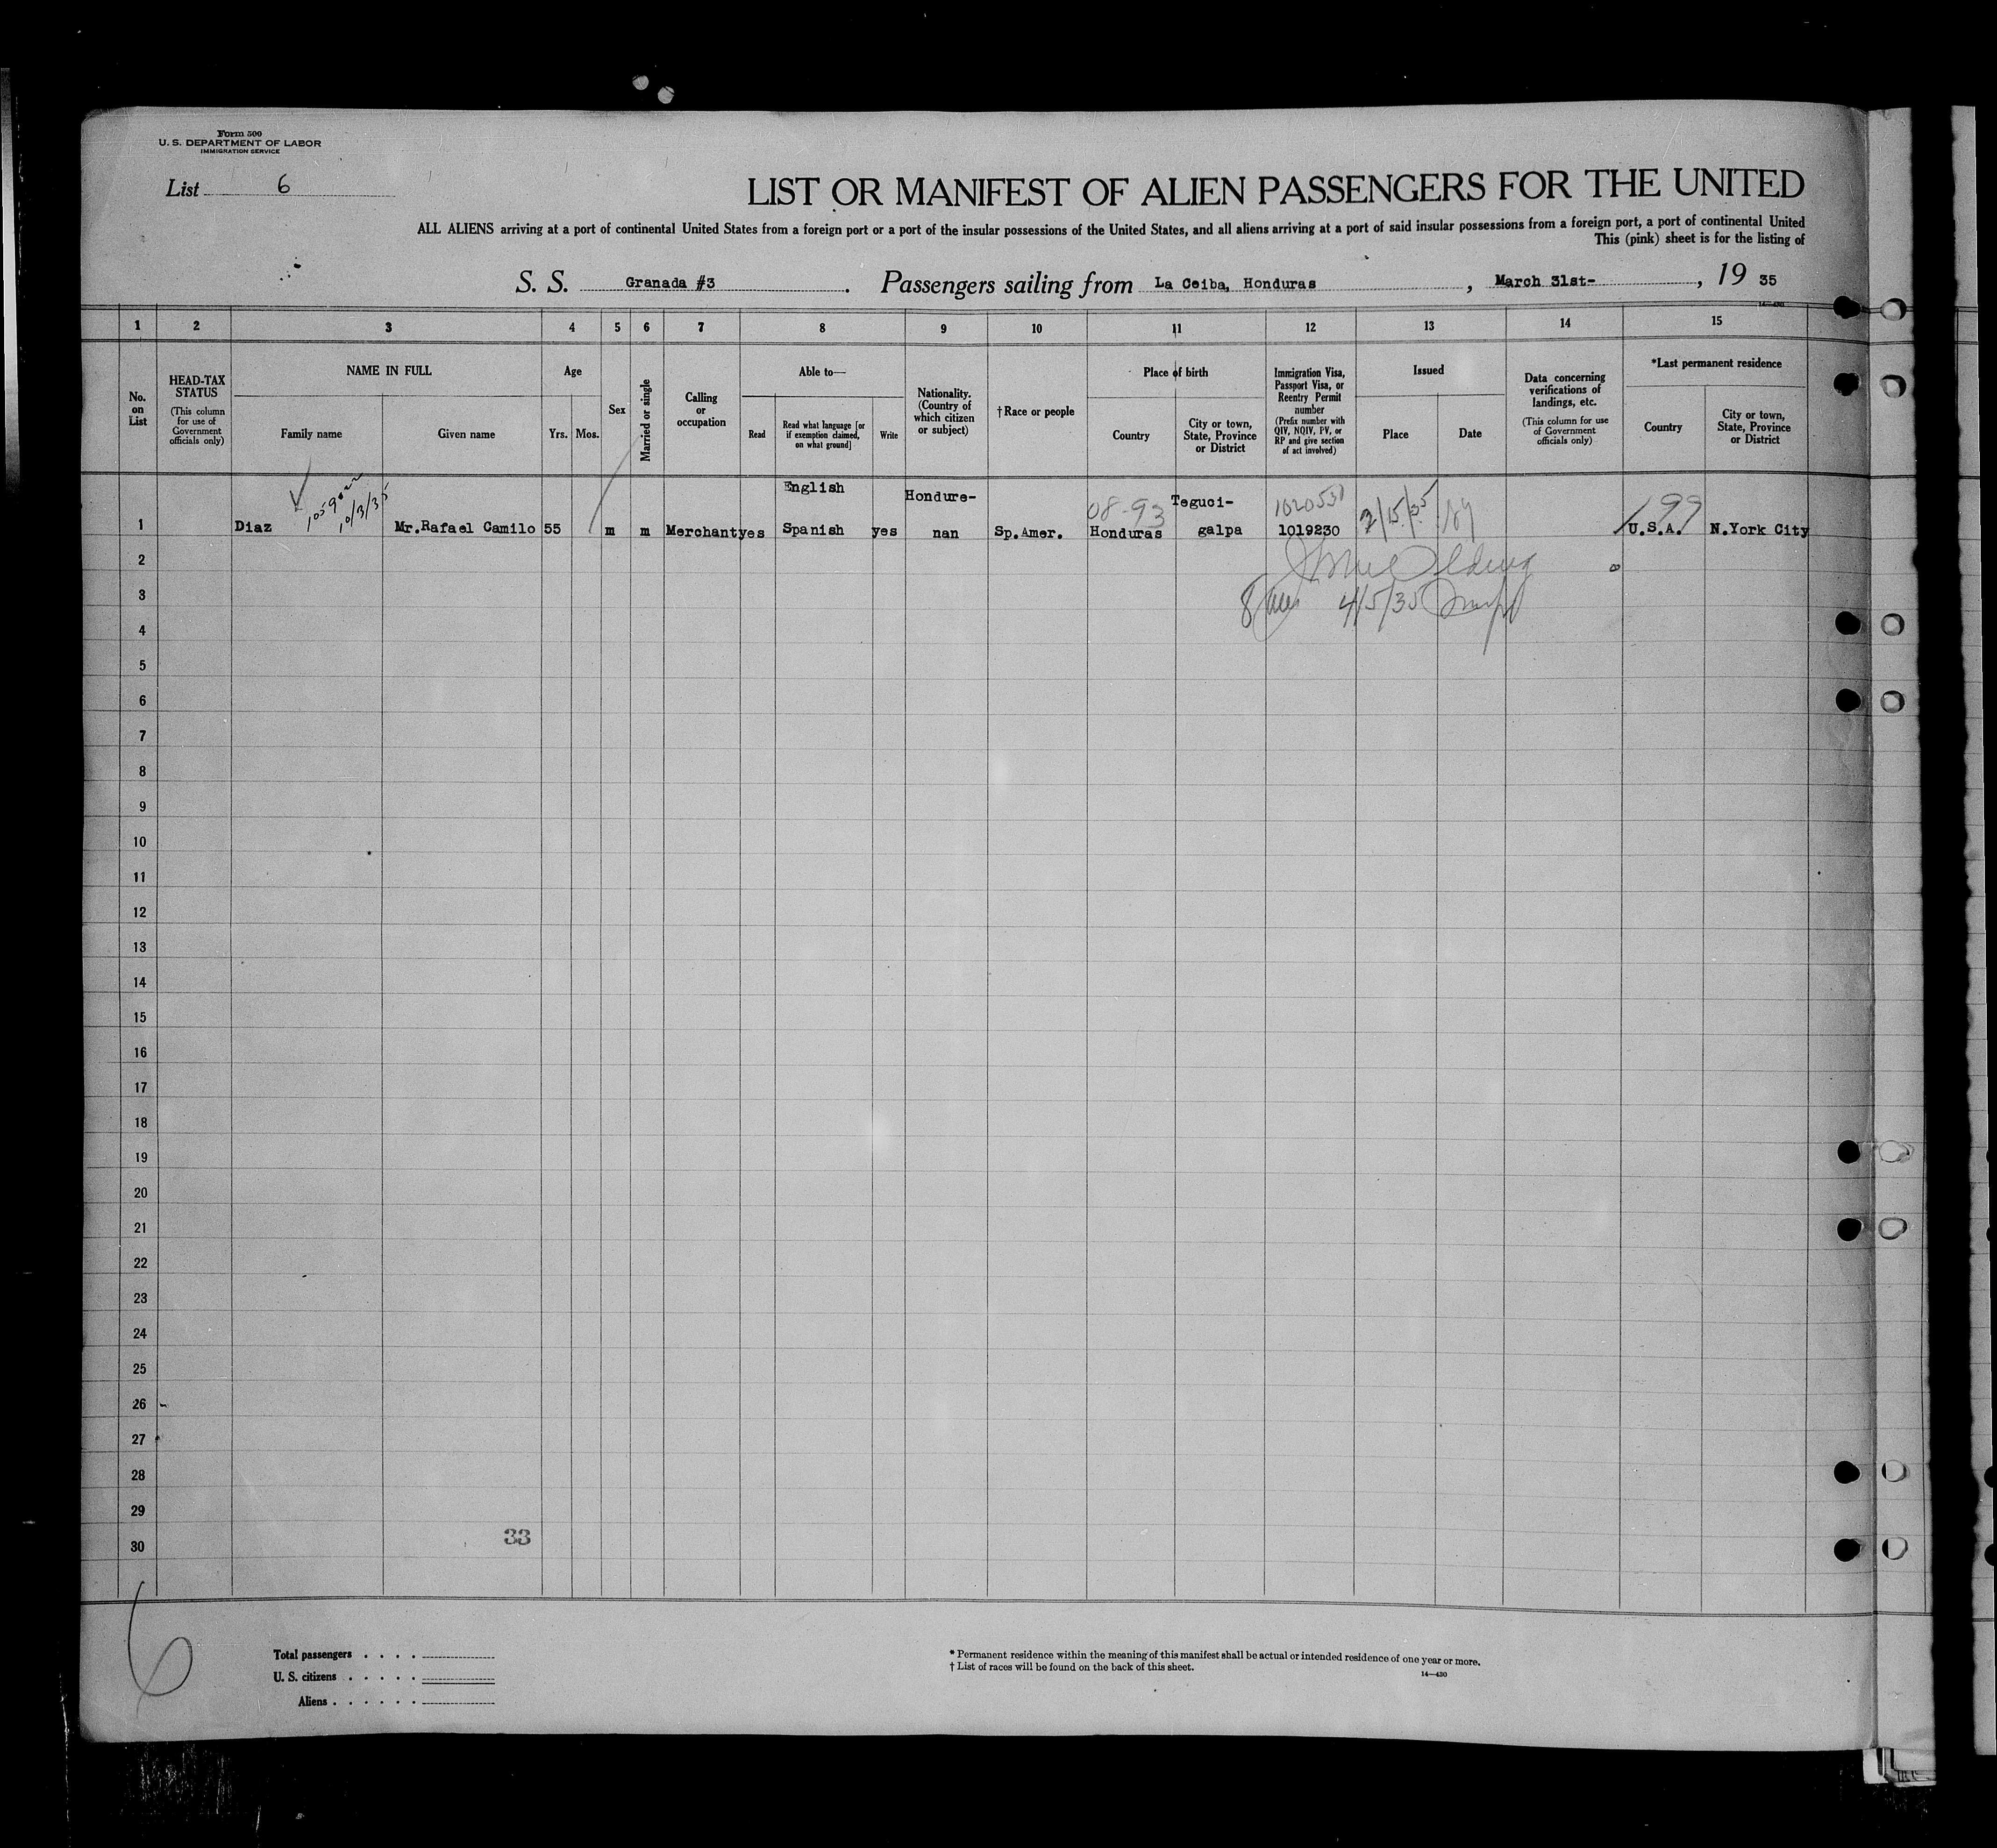 Form 500
U. S. DEPARTMENT OF LABOR
IMMIGRATION SERVICE
List 6
LIST OR MANIFEST OF ALIEN PASSENGERS FOR THE UNITED
ALL ALIENS arriving at a port of continental United States from a foreign port or a port of the insular possessions of the United States, and all aliens arriving at a port of said insular possessions from a foreign port, a port of continental United
This (pink) sheet is for the listing of
S. S. Granada #3. Passengers sailing from La Ceiba, Honduras, March 31st-, 19 35
1 2 3 4 5 6 7 8 9 10 11 12 13 14 15
No. on List
HEAD-TAX STATUS
(This column for use of Government officials only)
NAME IN FULL
Family name
Given name
Age
Yrs.
Mos.
Sex
Married or single
Calling or occupation
Able to—
Read
Read what language [or if exemption claimed, on what ground]
Write
Nationality. (Country of which citizen or subject)
†Race or people
Place of birth
Country
City or town, State, Province or District
Immigration Visa, Passport Visa, or Reentry Permit number
(Prefix number with QIV, NQIV, PV, or RP and give section of act involved)
Issued
Place
Date
Data concerning verifications of landings, etc.
(This column for use of Government officials only)
*Last permanent residence
Country
City or town, State, Province or District
10/3/35
English
Hondure-
08-93
Teguci-
1020531
2/15/35
199
1 Diaz Mr.Rafael Camilo 55 m m Merchant yes Spanish yes nan Sp.Amer. Honduras galpa 1019230 U.S.A. N.York City
2
3 4/5/35
4
5
6
7
8
9
10
11
12
13
14
15
16
17
18
19
20
21
22
23
24
25
26
27
28
29
30
33
6
Total passengers
U. S. citizens
Aliens
* Permanent residence within the meaning of this manifest shall be actual or intended residence of one year or more.
† List of races will be found on the back of this sheet.
14—430